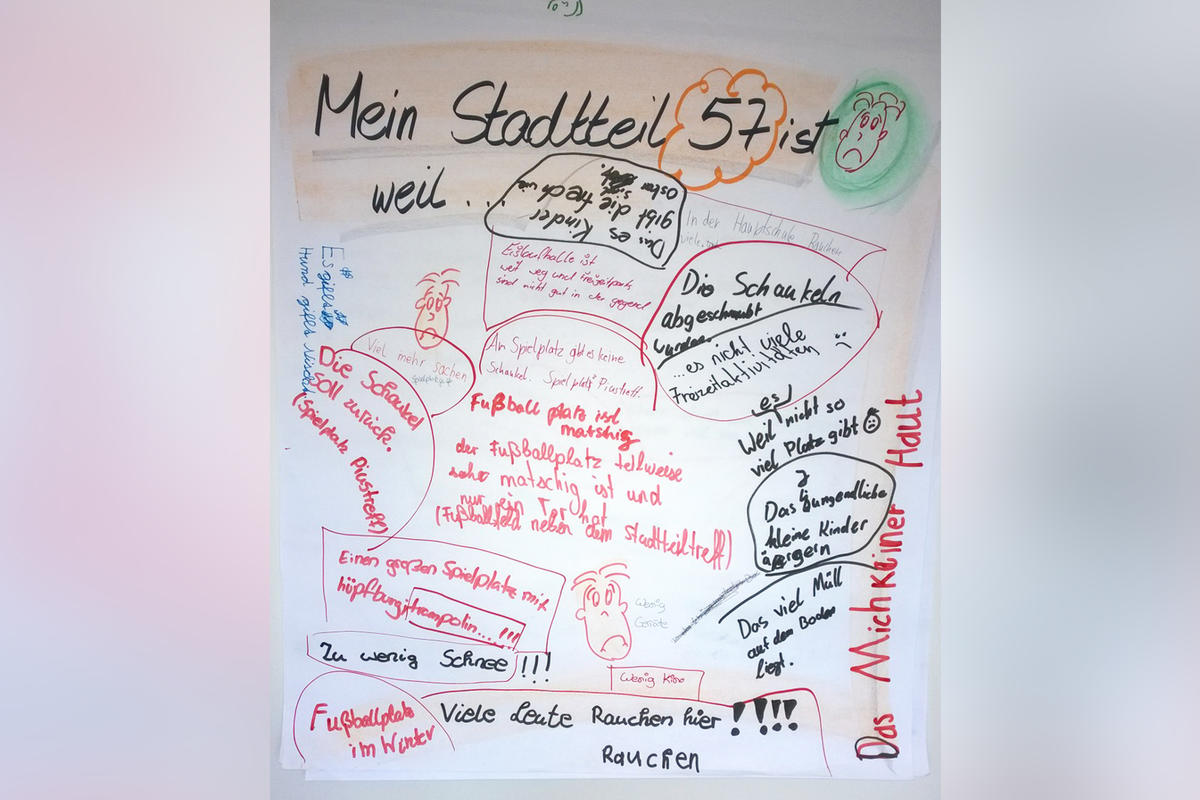 Mein Stadtteil 57 ist
weil ...
Das es Kinder
gibt die frech
sind.
In der Hauptschule Rauchen
viele
Eislaufhalle ist
weit weg und Freizeitpark
sind nicht gut in der gegend
Die Schaukeln
abgeschraubt
wurden.
...es nicht viele
Freizeitaktivitäten
Es gibts
Hund gibts
Viel mehr sachen
An Spielplatz gibt es keine
Schaukel. Spielplatz Piustreff.
Die Schaukel
soll zurück.
(Spielplatz Piustreff)
Fußball platz ist
matshig
der Fußballplatz teilweise
sehr matschig ist und
nur ein Tor hat
(Fußballfeld neben dem Stadtteiltreff)
es
Weil nicht so
viel Platz gibt
Das Jungendliche
kleine Kinder
ärgern
Das Mich keiner Haut
Einen großen Spielplatz mit
hüpfburg, trampolin...!!!
Wenig
Geräte
Das viel Müll
auf dem Boden
liegt.
Zu wenig Schnee!!!
Wenig Kino
Fußballplatz
im Winter
Viele Leute Rauchen hier !!!!
Rauchen